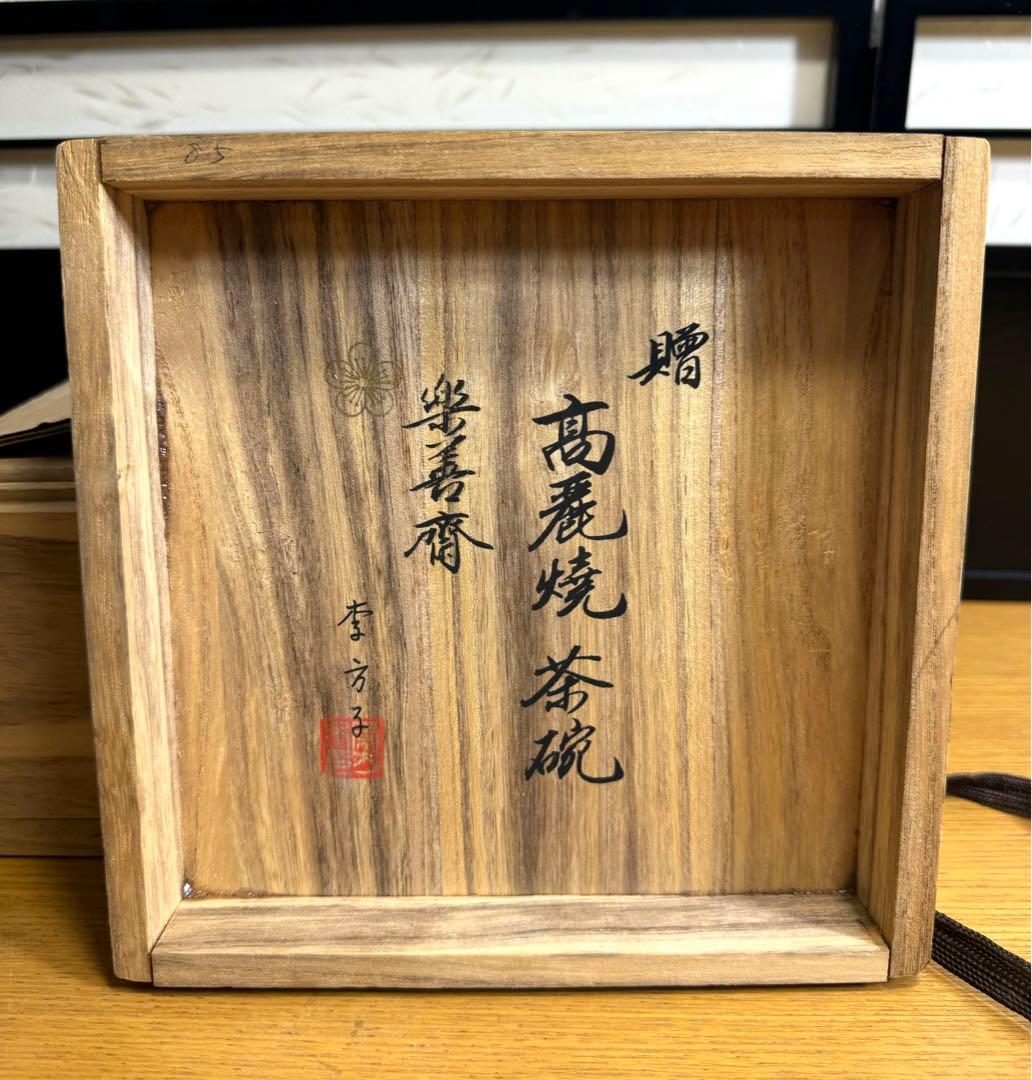 贈
高麗燒 茶碗
樂善齋
李方子
85